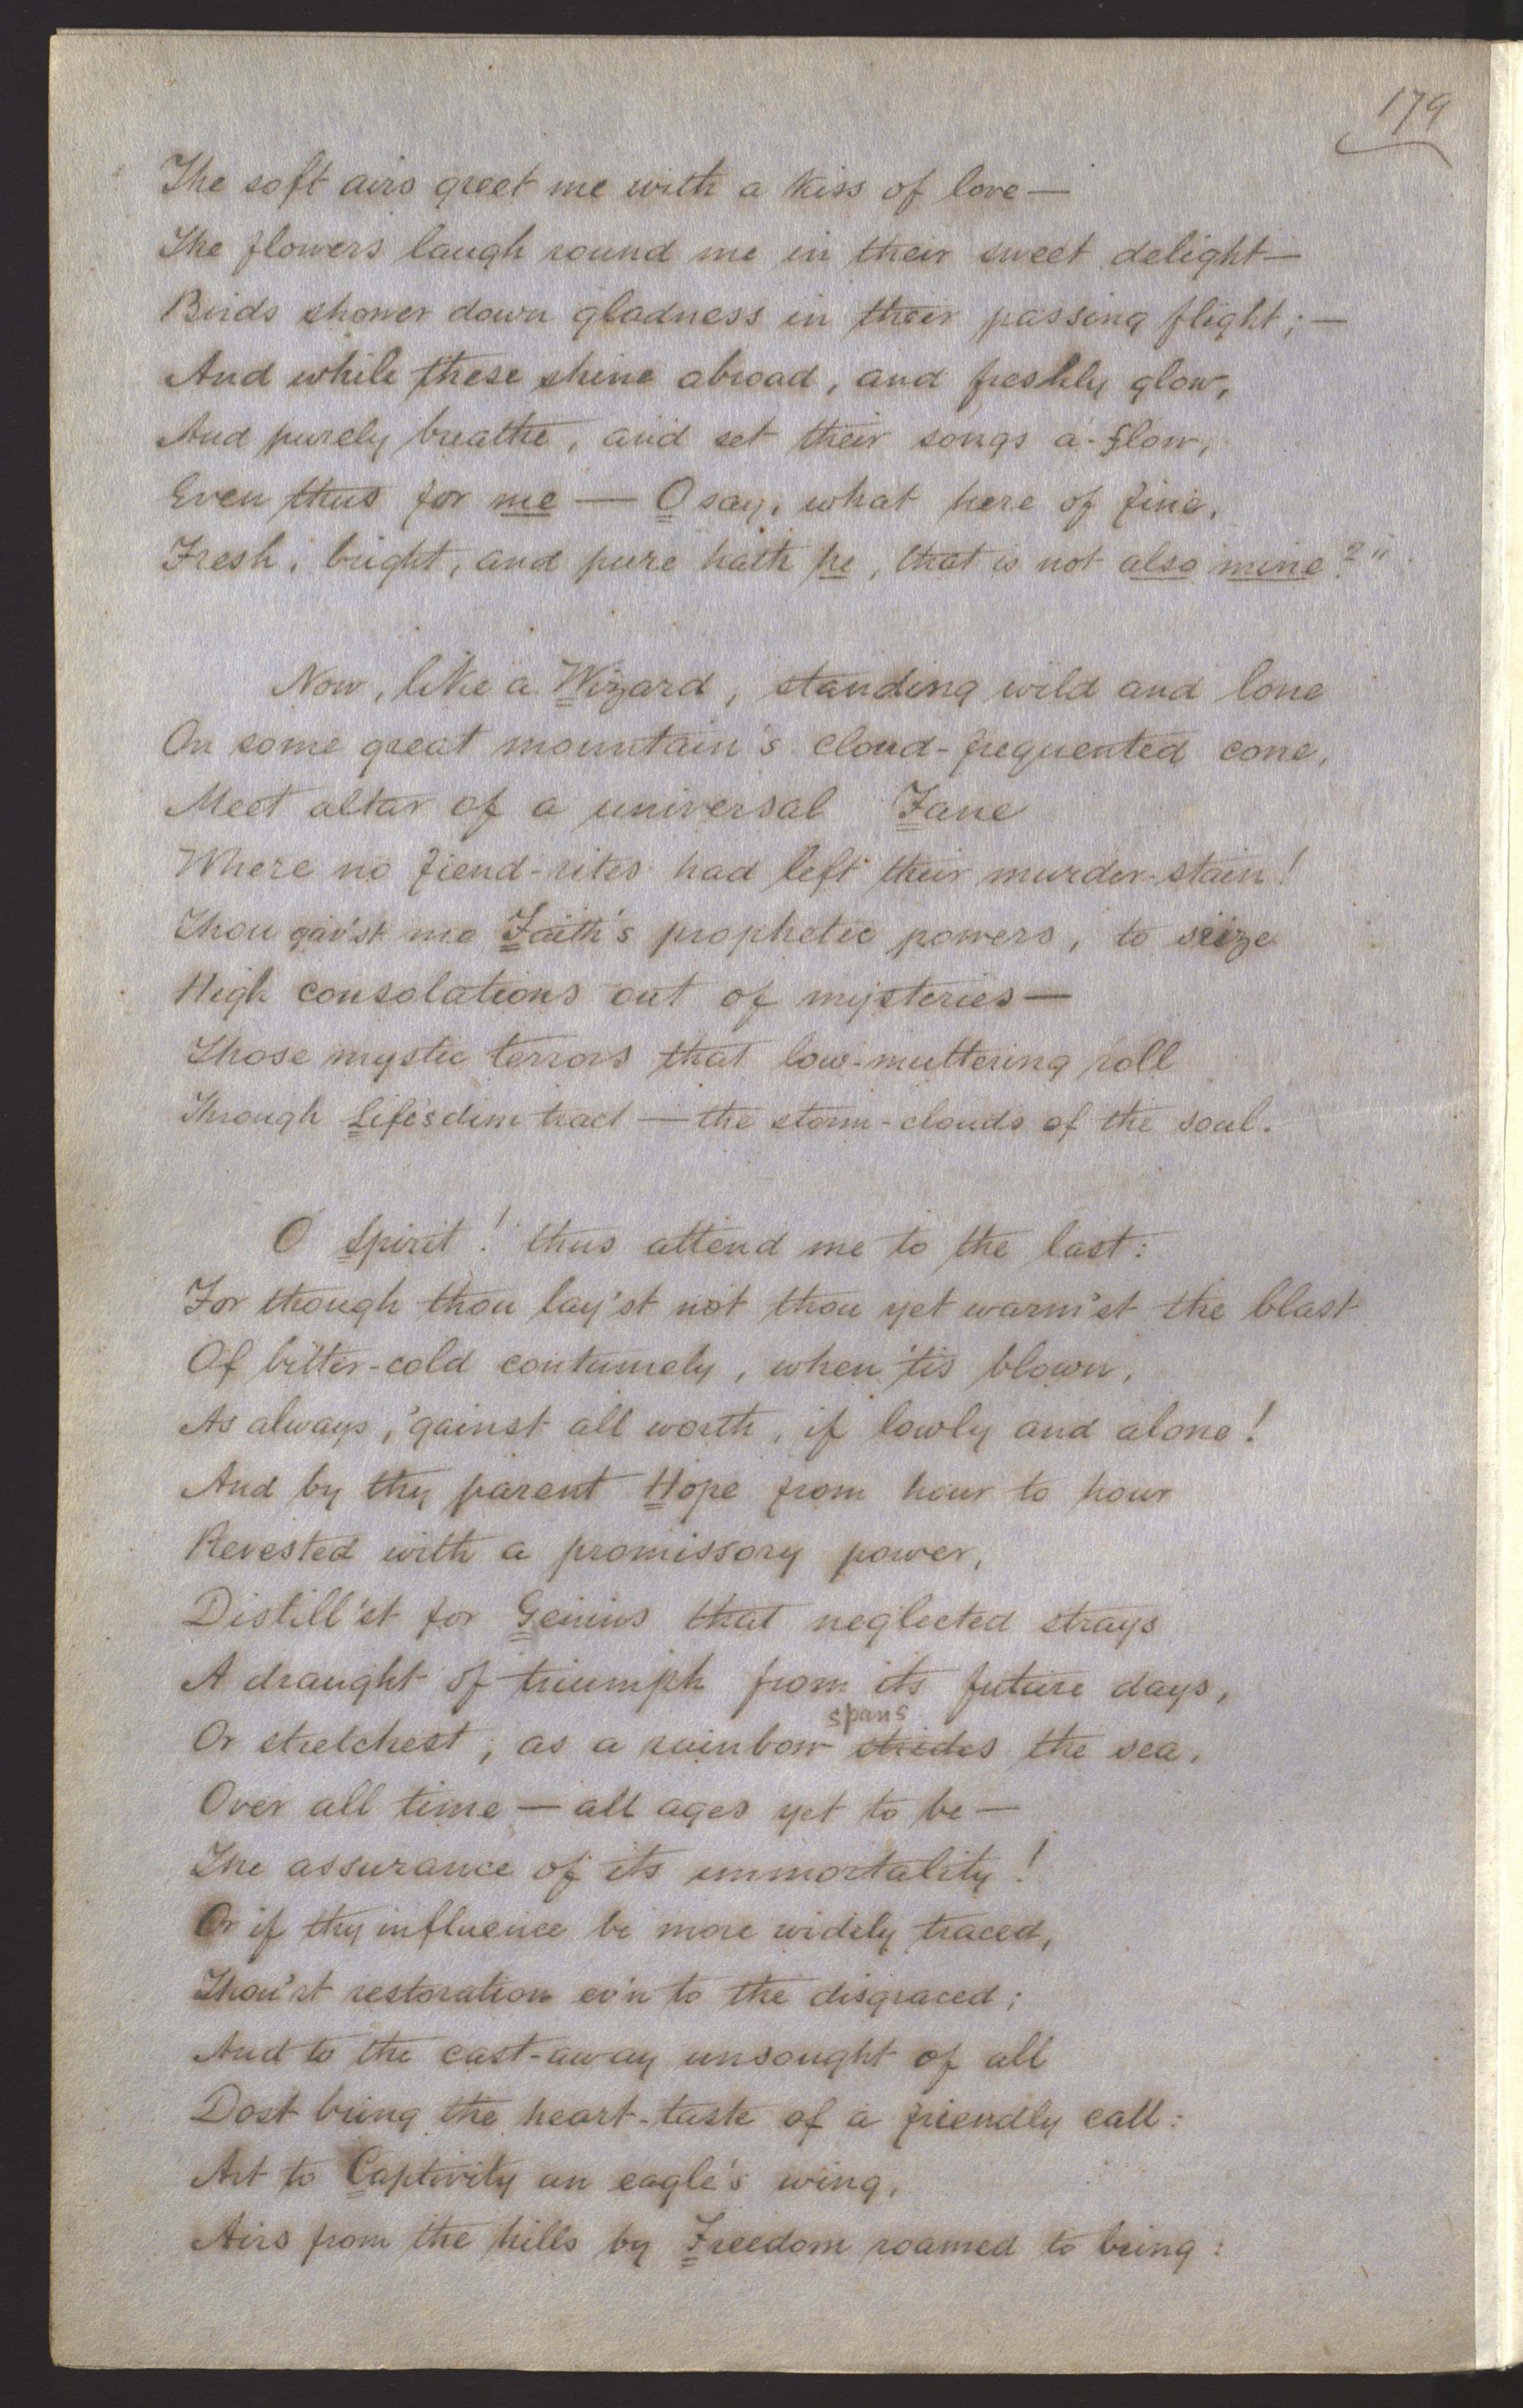 179
The soft airs greet me with a kiss of love —
The flowers laugh round me in their sweet delight —
Birds shower down gladness in their passing flight; —
And while these shine abroad, and freshly glow,
And purely breathe, and set their songs a-flow,
Even thus for me — O say, what here of fine,
Fresh, bright, and pure hath he, that is not also mine?"
Now, like a Wizard, standing wild and lone
On some great mountain's cloud-frequented cone,
Meet altar of a universal Fane
Where no fiend-rites had left their murder-stain!
Thou gav'st me Faith's prophetic powers, to seize
High consolations out of mysteries —
Those mystic terrors that low-muttering roll
Through Life's dim tract — the storm-clouds of the soul.
O Spirit! thus attend me to the last:
For though thou lay'st not thou yet warm'st the blast
Of bitter-cold contumely, when 'tis blown,
As always, 'gainst all worth, if lowly and alone!
And by thy parent Hope from hour to hour
Revested with a promissory power,
Distill'st for Genius that neglected strays
A draught of triumph from its future days,
spans
Or stretchest, as a rainbow strides the sea,
Over all time — all ages yet to be —
The assurance of its immortality!
Or if thy influence be more widely traced,
Thou'rt restoration ev'n to the disgraced;
And to the cast-away unsought of all
Dost bring the heart-taste of a friendly call:
Art to Captivity an eagle's wing,
Airs from the hills by Freedom roamed to bring: